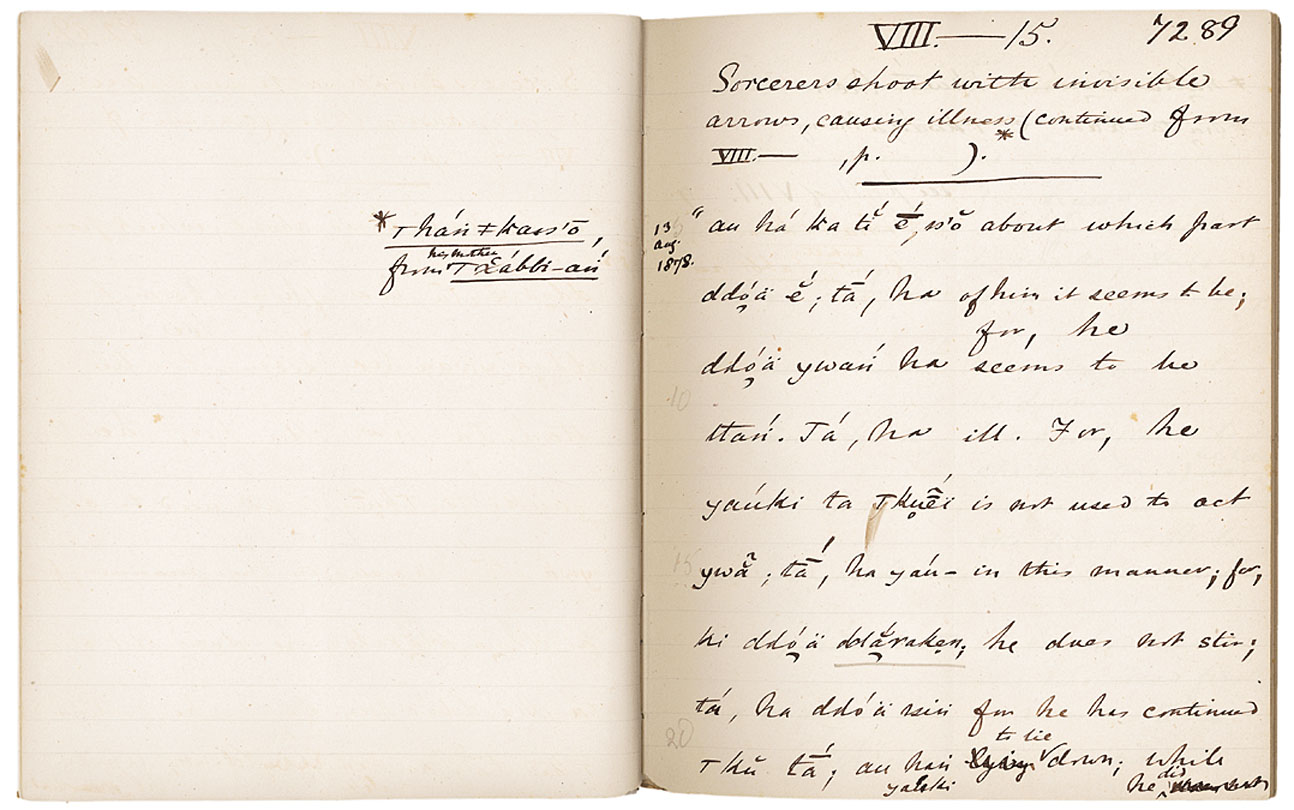 * ǀhán ǂkass'ō,
from his mother ǀxábbi-aṅ
VIII.—15. 7289
Sorcerers shoot with invisible
arrows, causing illness * (continued from
VIII.— , p. ).
13 Aug. 1878.
" au há ka tĭ é, about which part
ddóä ĕ́; tá, ha of him it seems to be;
for, he
ddóä ywaṅ́ ha seems to be
ttaṅ́. Tá, ha ill. For, he
yaúki ta ǀkuĕ́ï is not used to act
ywẵ; tā́, ha yaú- in this manner; for,
ki ddóä ddắraken; he does not stir;
tá, ha ddóä ssiṅ for he has continued
to lie
ǀkŭ tā́; au haṅ down; while
yaúki he did
10
15
20